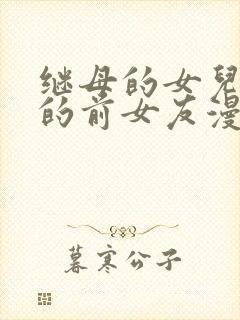 继母的女兒
的前女友漫
暮寒公子